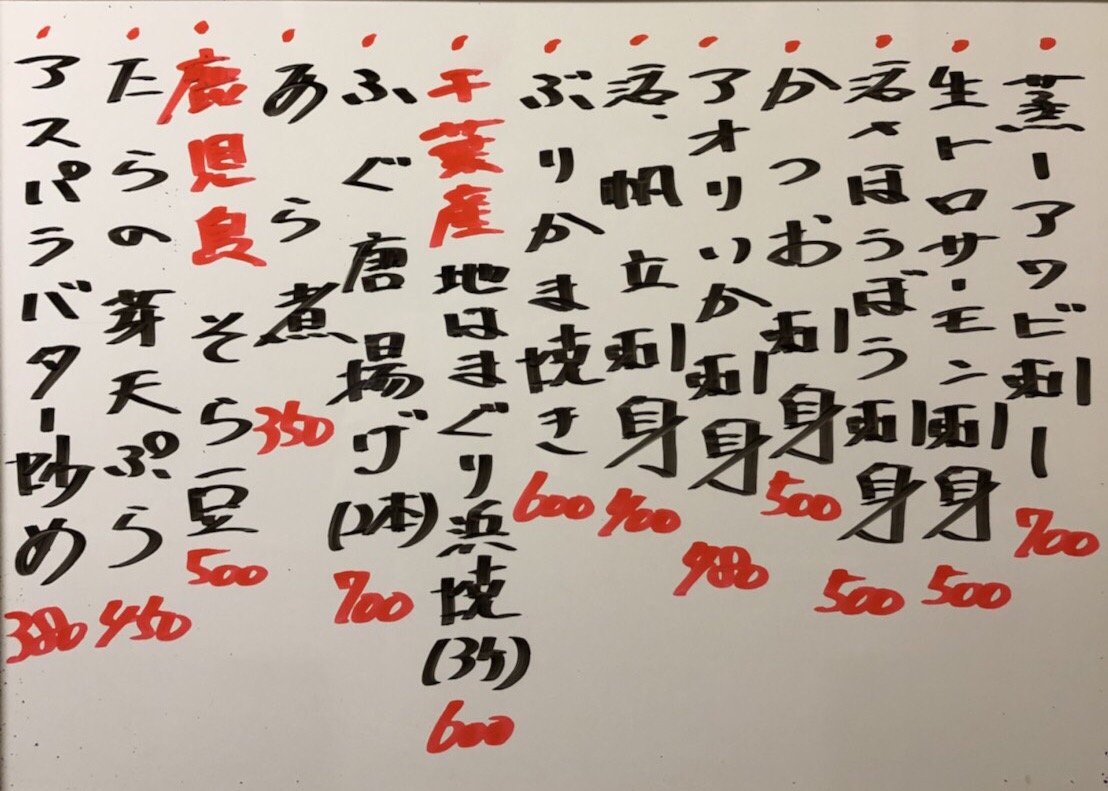 ・蒸しアワビ刺し 700
・生トロサーモン刺身 500
・活〆ほうぼう刺身 500
・かつお刺身 500
・アオリいか刺身 480
・活、帆立刺身 400
・ぶりかま焼き 600
・千葉産地はまぐり浜焼(3ケ) 600
・ふぐ唐揚げ(2本) 700
・あら煮 350
・鹿児島そら豆 500
・たらの芽天ぷら 450
・アスパラバター炒め 380